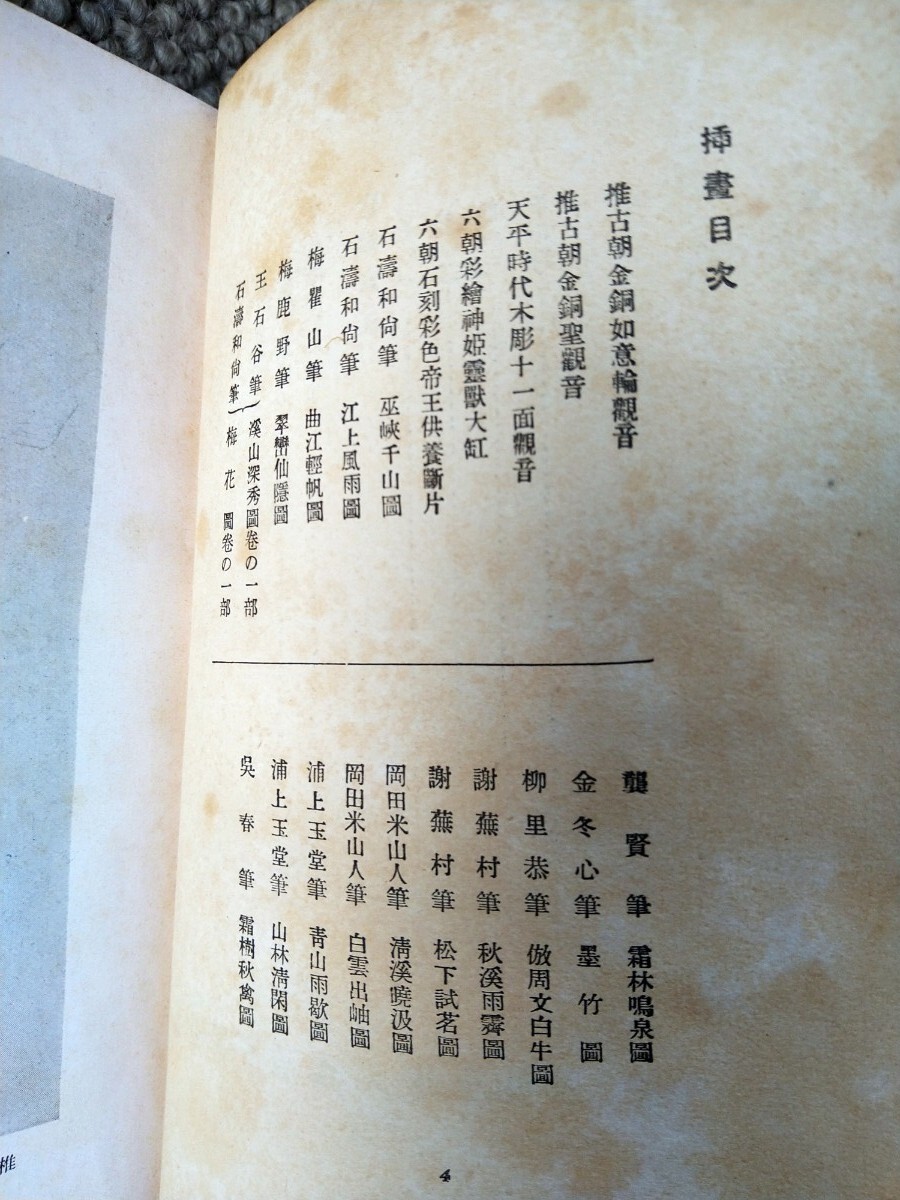 挿畫目次
推古朝金銅如意輪觀音
推古朝金銅聖觀音
天平時代木彫十一面觀音
六朝彩繪神姫靈獸大缸
六朝石刻彩色帝王供養斷片
石濤和尙筆 巫峽千山圖
石濤和尙筆 江上風雨圖
梅瞿山筆 曲江輕帆圖
梅鹿野筆 翠巒仙隱圖
王石谷筆 溪山深秀圖卷の一部
石濤和尙筆 梅花圖卷の一部
龔賢筆 霜林鳴泉圖
金冬心筆 墨竹圖
柳里恭筆 倣周文白牛圖
謝蕪村筆 秋溪雨霽圖
謝蕪村筆 松下試茗圖
岡田米山人筆 淸溪曉汲圖
岡田米山人筆 白雲出岫圖
浦上玉堂筆 靑山雨歇圖
浦上玉堂筆 山林淸閑圖
吳春筆 霜樹秋禽圖
4
推